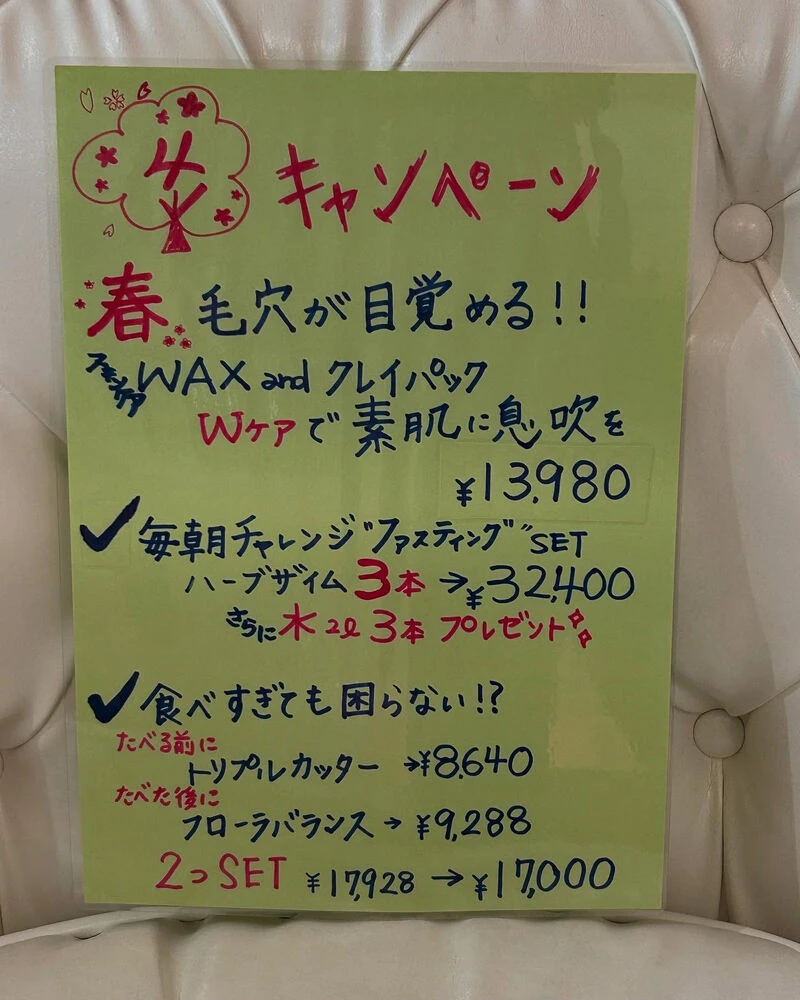 4 キャンペーン
春 毛穴が目覚める!!
スキンケア WAX and クレイパック
Wケアで素肌に息吹を
¥13,980
✓毎朝チャレンジ"ファスティング"SET
ハーブザイム3本→¥32,400
さらに水2ℓ3本プレゼント
✓食べすぎても困らない!?
たべる前に
トリプルカッター→¥8,640
たべた後に
フローラバランス→¥9,288
2つSET ¥17,928→¥17,000